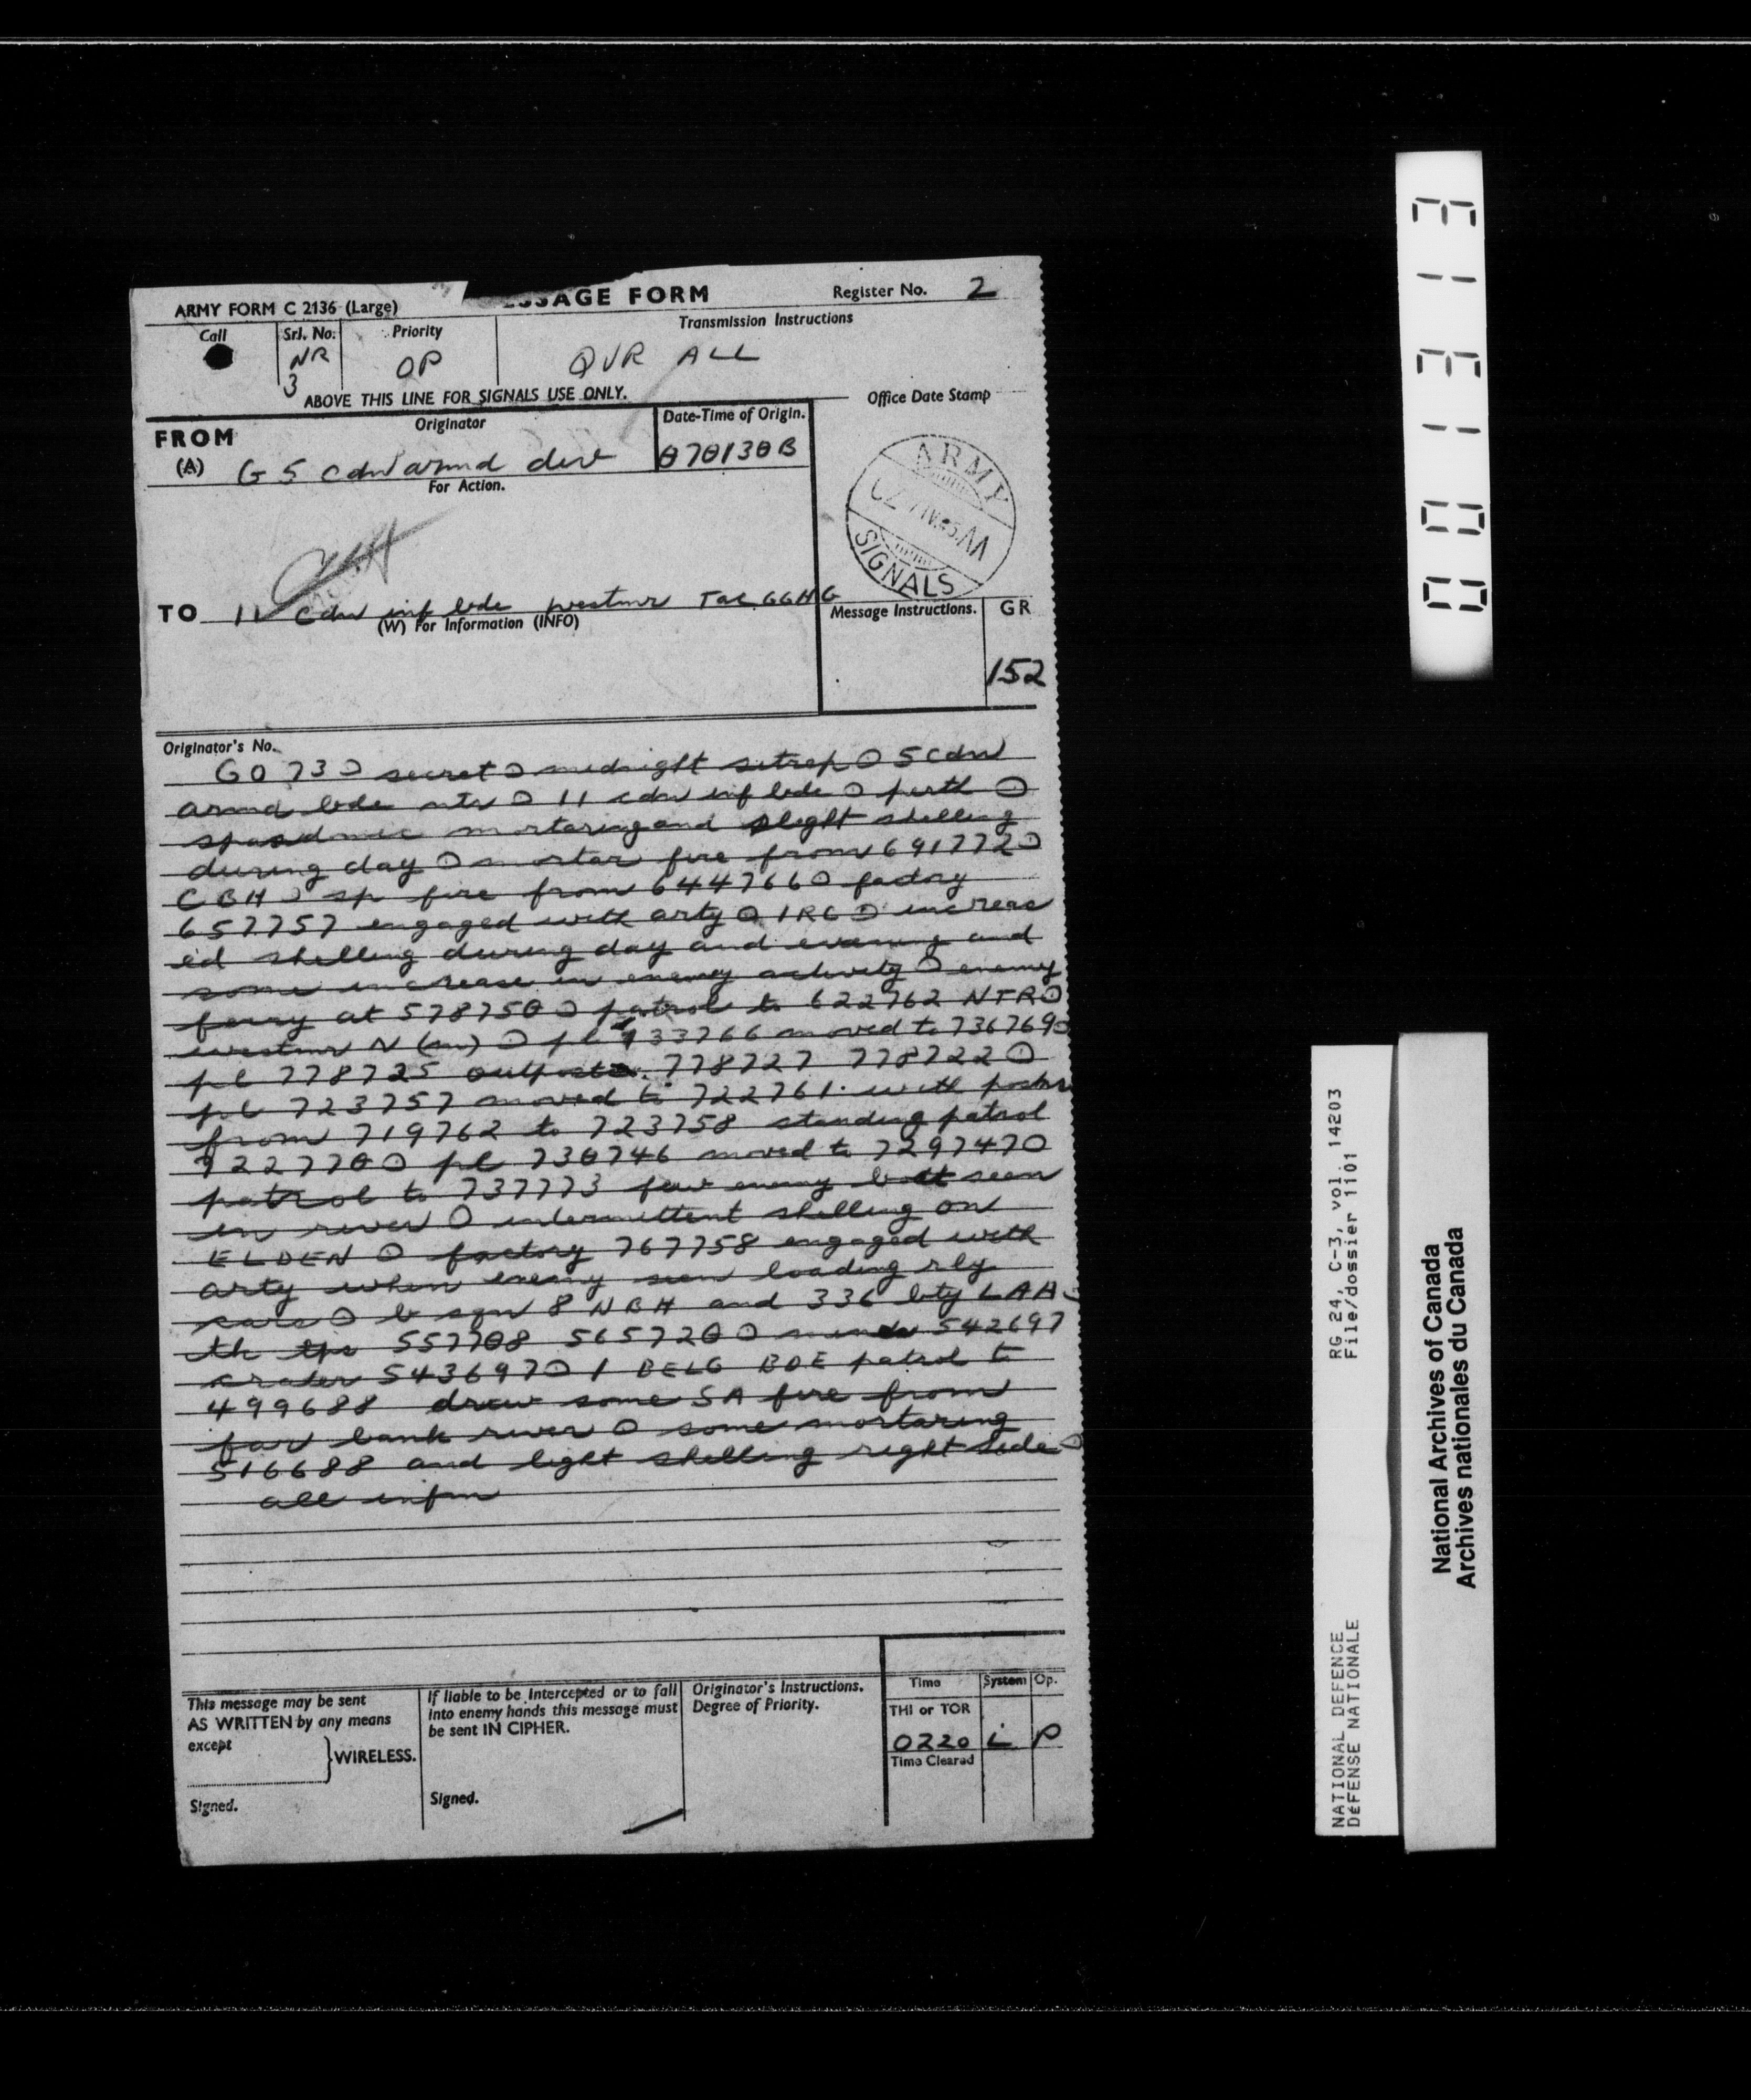 ARMY FORM C 2136 (Large)
SSAGE FORM
Register No. 2
Call
Srl. No.
Priority
Transmission Instructions
NR
3
OP
QVR ALL
ABOVE THIS LINE FOR SIGNALS USE ONLY.
Office Date Stamp
FROM
(A)
Originator
Date-Time of Origin.
G 5 cdn armd div
070130B
For Action.
ARMY
SIGNALS
TO 11 cdn inf bde westmr Tac GGHG
(W) For Information (INFO)
Message Instructions.
GR
152
Originator's No.
GO 73 O secret O midnight sitrep O 5 cdn
armd bde ntr O 11 cdn inf bde O perth O
spasdmic mortaring and slight shelling
during day O mortar fire from 691772 O
CBH O sp fire from 644766 O factory
657757 engaged with arty O IRC O increas
ed shelling during day and evening and
some increase in enemy activity O enemy
ferry at 578750 O patrol to 622762 NTR O
westmr N (m) O pl 733766 moved to 736769 O
pl 778725 outposts 778727 778722 O
pl 723757 moved to 722761 with
from 719762 to 723758 standing patrol
722770 O pl 730746 moved to 729747 O
patrol to 737773 few enemy seen
in river O intermittent shelling on
ELDEN O factory 767758 engaged with
arty when enemy seen loading rly
cars O b sqn 8 NBH and 336 bty LAA O
th tps 557708 565720 O 542697
crater 543697 O 1 BELG BDE patrol to
499688 drew some SA fire from
far bank river O some mortaring
516688 and light shelling right side O
all infm
This message may be sent
AS WRITTEN by any means
except
WIRELESS.
Signed.
If liable to be intercepted or to fall
into enemy hands this message must
be sent IN CIPHER.
Signed.
Originator's Instructions.
Degree of Priority.
Time
System
Op.
THI or TOR
0220 L P
Time Cleared
00313
RG 24, C-3, vol. 14203
File/dossier 1101
NATIONAL DEFENCE
DÉFENSE NATIONALE
National Archives of Canada
Archives nationales du Canada